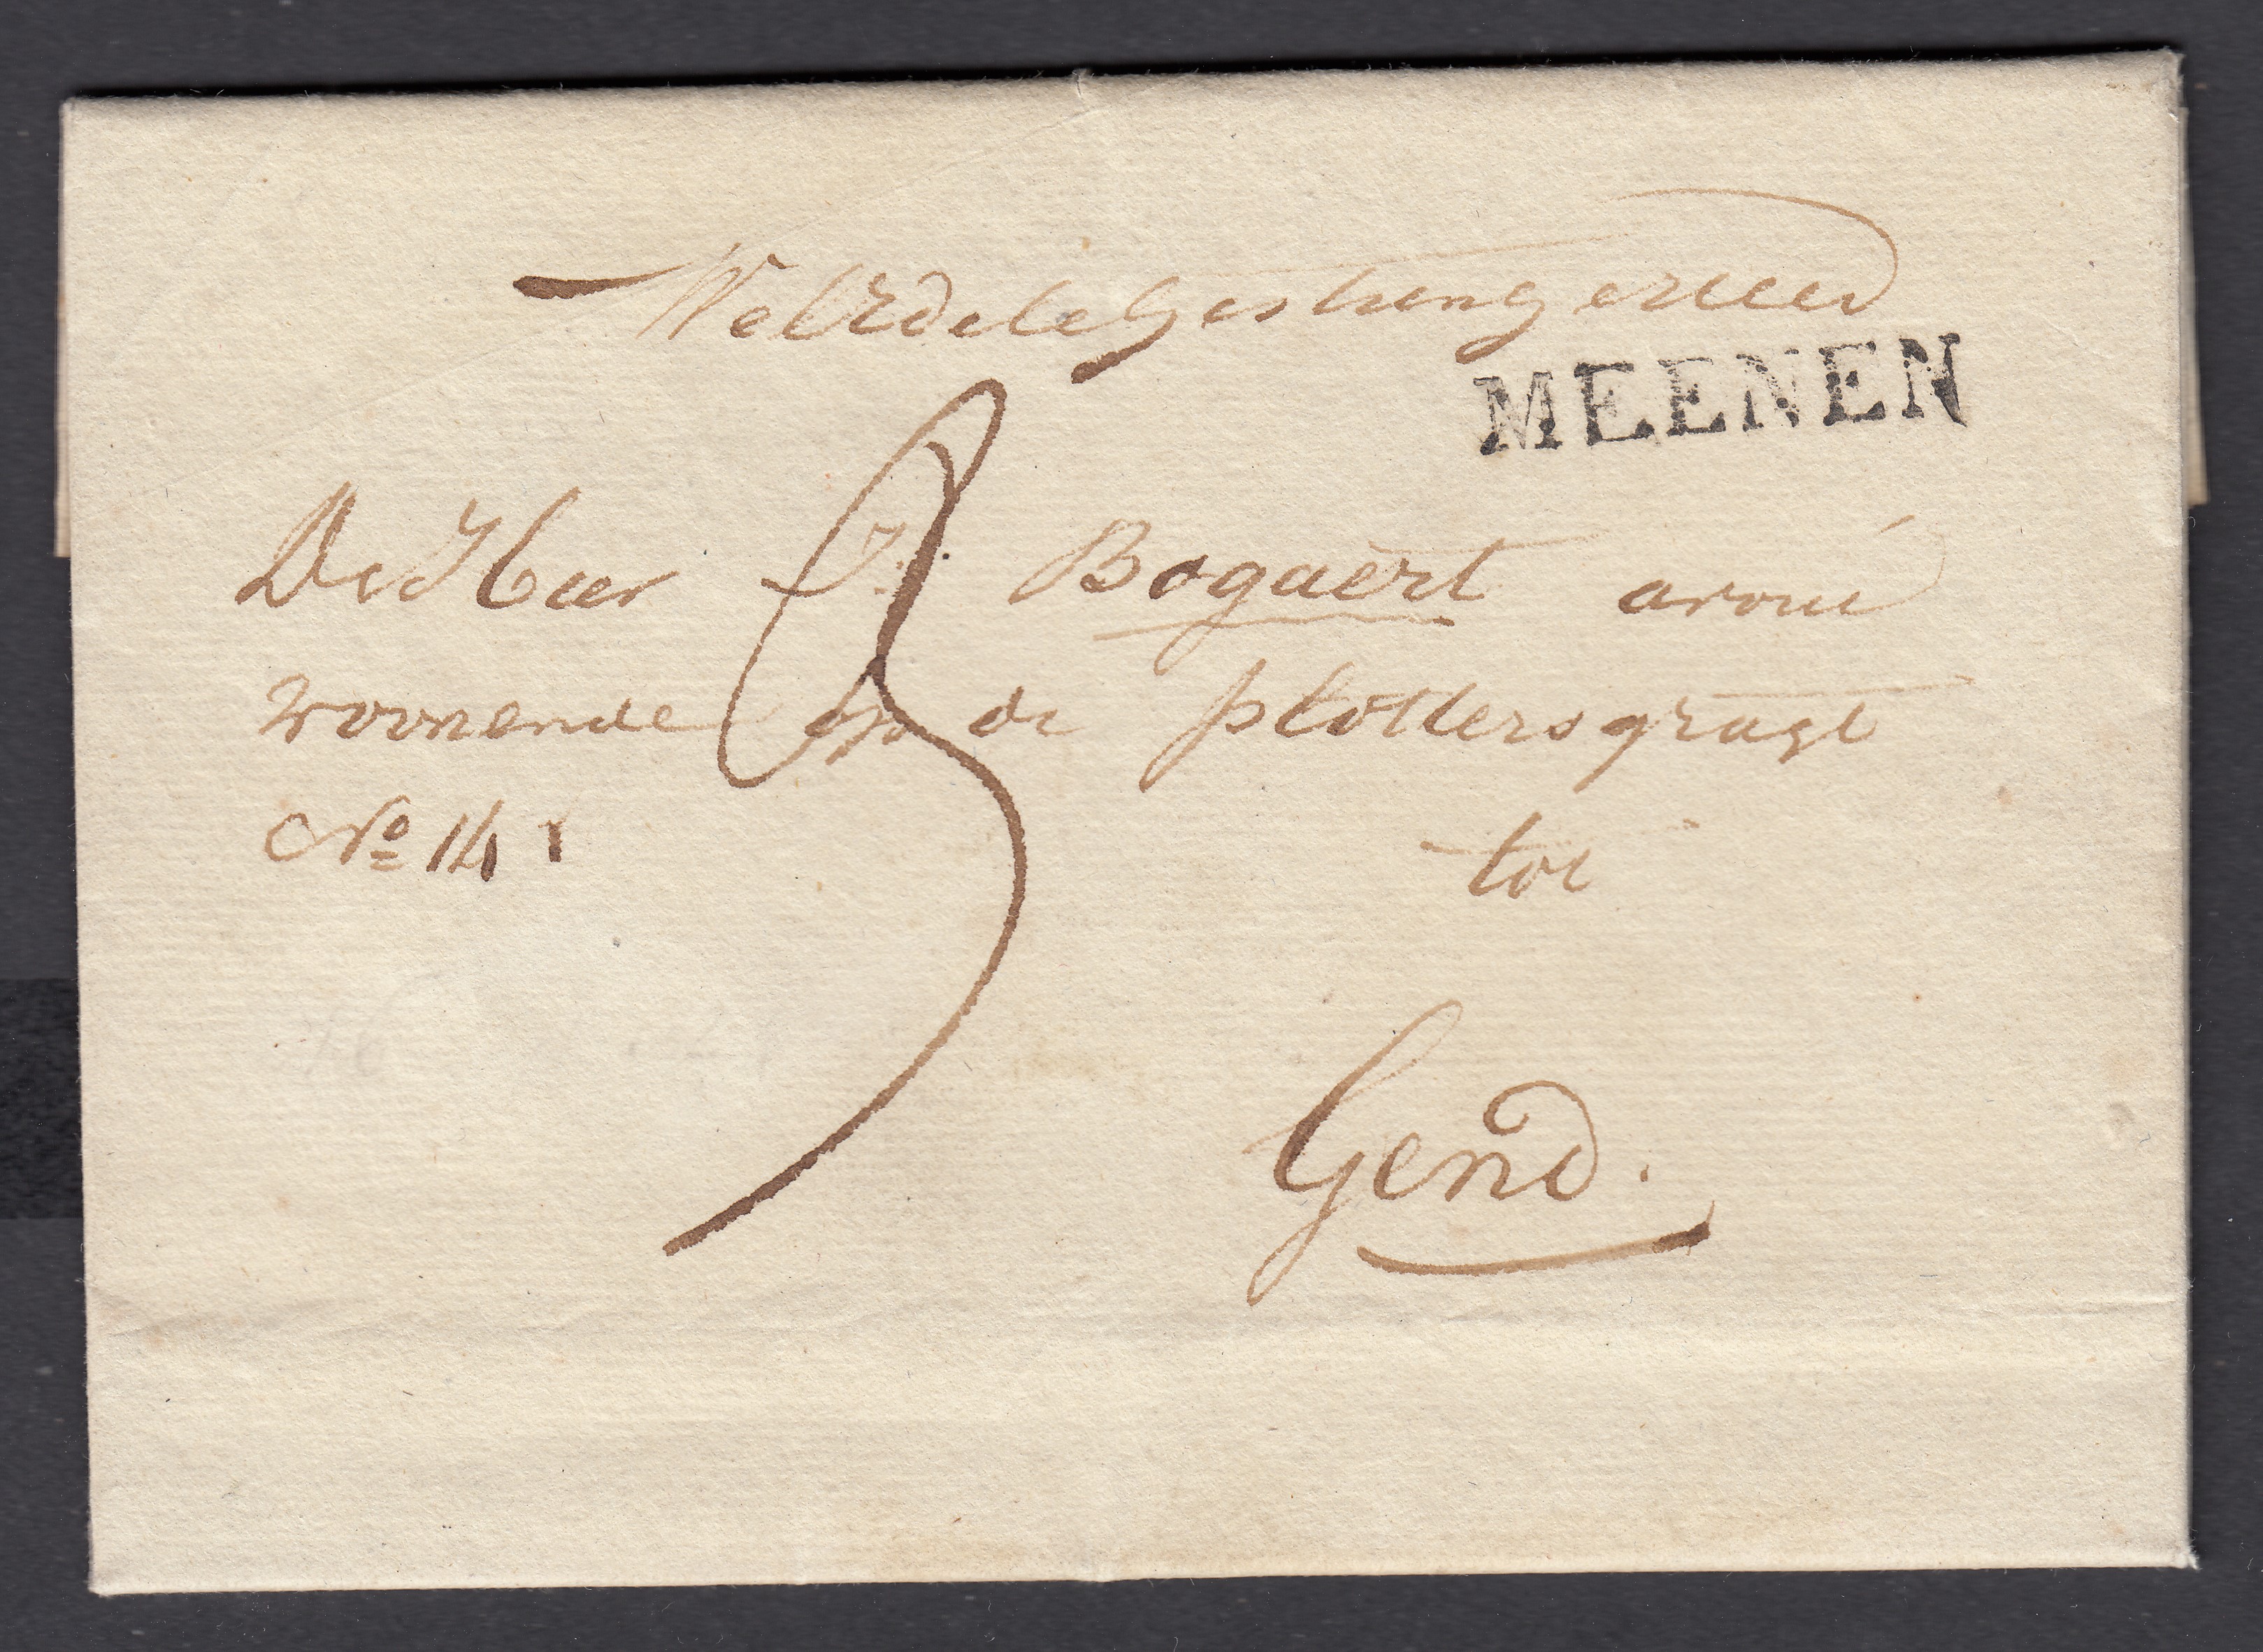 WelEdele Gestrenge Heer
MEENEN
De Heer J: Bogaert avoué
woonende op de plottersgragt
No 141
tot
Gend.
3